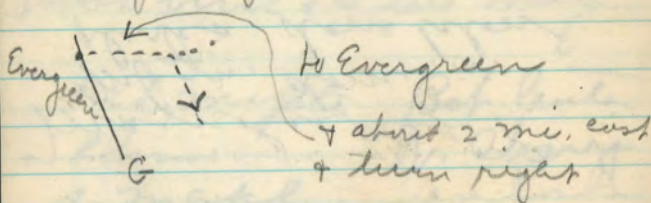 Evergreen
to Evergreen
+ about 2 mi. east
+ turn right
G